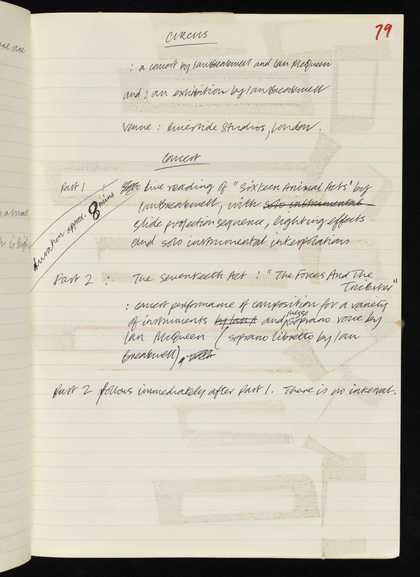 79
CIRCUS
: a concert by Ian Breakwell and Ian McQueen
and : an exhibition by Ian Breakwell
Venue : Riverside Studios, London.
Concert
Part 1 : Live reading of "Sixteen Animal Acts" by
Ian Breakwell, with solo instrumental
slide projection sequence, lighting effects
and solo instrumental interpolations
duration approx. 8 mins
Part 2 : The Seventeenth Act : "The Forces And The
: concert performance of composition for a variety
of instruments by Ian and mezzo soprano voice by
Ian McQueen (soprano libretto by Ian
Breakwell)
Part 2 follows immediately after Part 1. There is no interval.